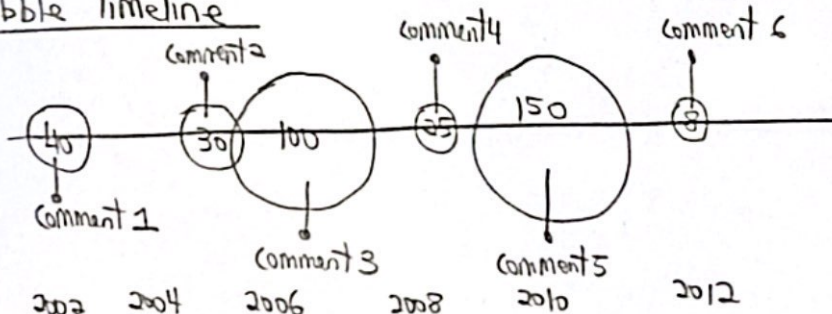 bble Timeline
comment 2
comment4
comment 6
40
30
100
25
150
8
comment 1
comment 3
comment5
2002 2004 2006 2008 2010 2012